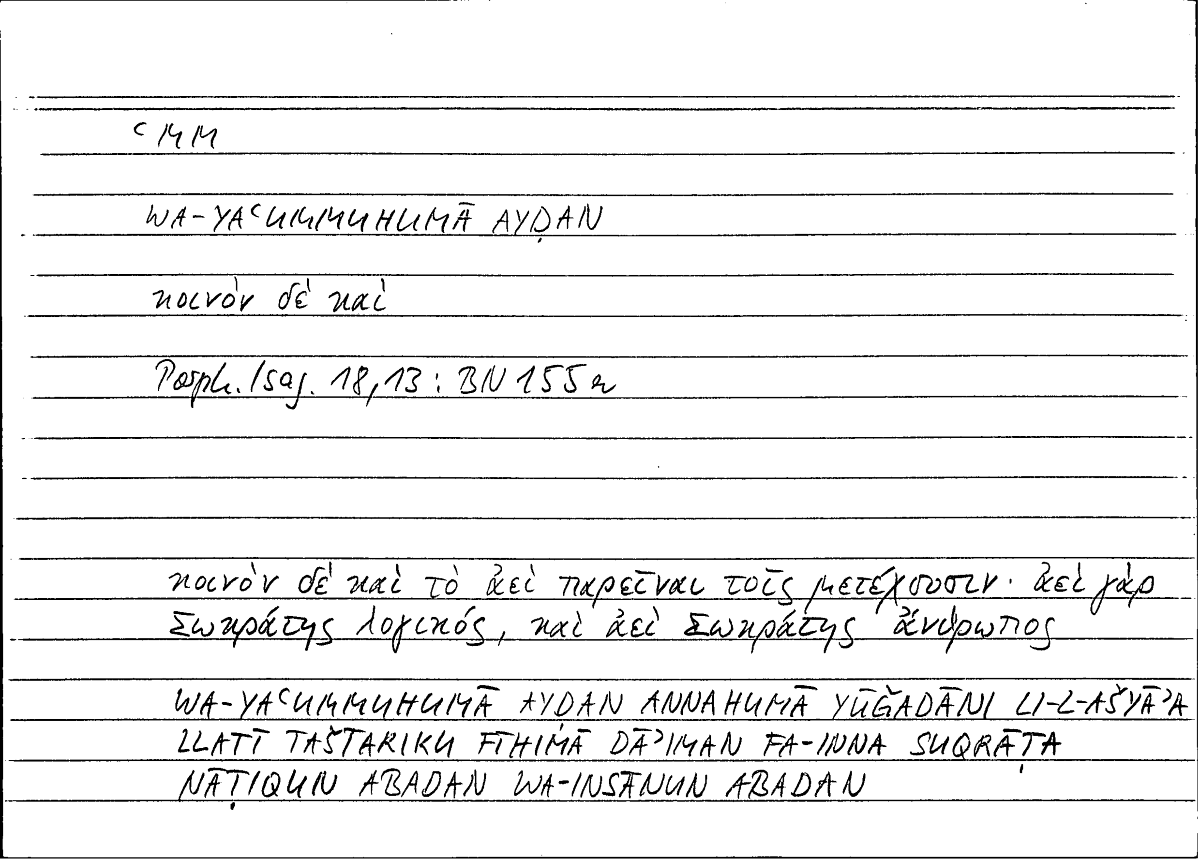 ʿMM
WA-YAʿUMMUHUMĀ AYḌAN
κοινὸν δὲ καὶ
Porph. Isag. 18,13: BN 155r
κοινὸν δὲ καὶ τὸ ἀεὶ παρεῖναι τοῖς μετέχουσιν· ἀεὶ γὰρ
Σωκράτης λογικός, καὶ ἀεὶ Σωκράτης ἄνθρωπος
WA-YAʿUMMUHUMĀ AYḌAN ANNAHUMĀ YŪǦADĀNI LI-L-AŠYĀʾA
LLATĪ TAŠTARIKU FĪHIMĀ DĀʾIMAN FA-INNA SUQRĀṬA
NĀṬIQUN ABADAN WA-INSĀNUN ABADAN